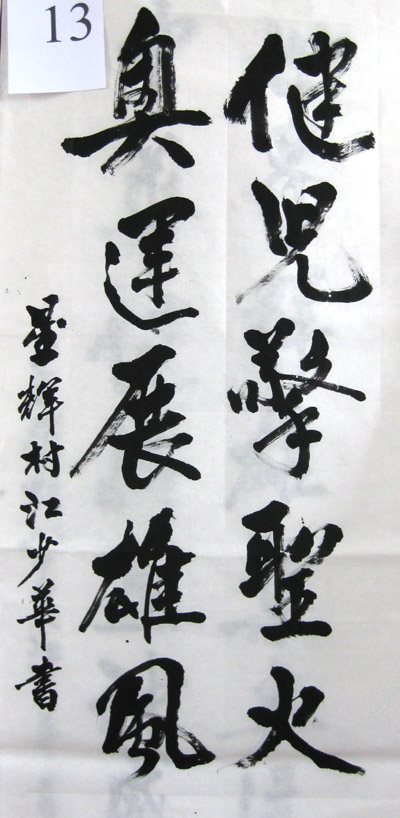 健兒擎聖火
奧運展雄風
星輝村江少華書
13